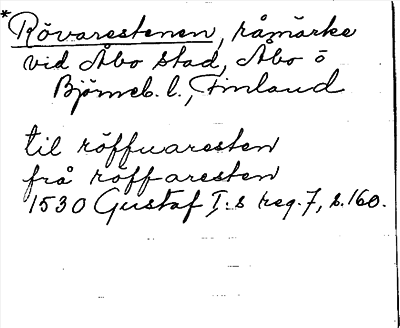 *Rövarestenen, råmärke
vid Åbo stad, Åbo o
Björneb. l., Finland
til röffuaresten
frå röffaresten
1530 Gustaf I:s reg. 7, s. 160.